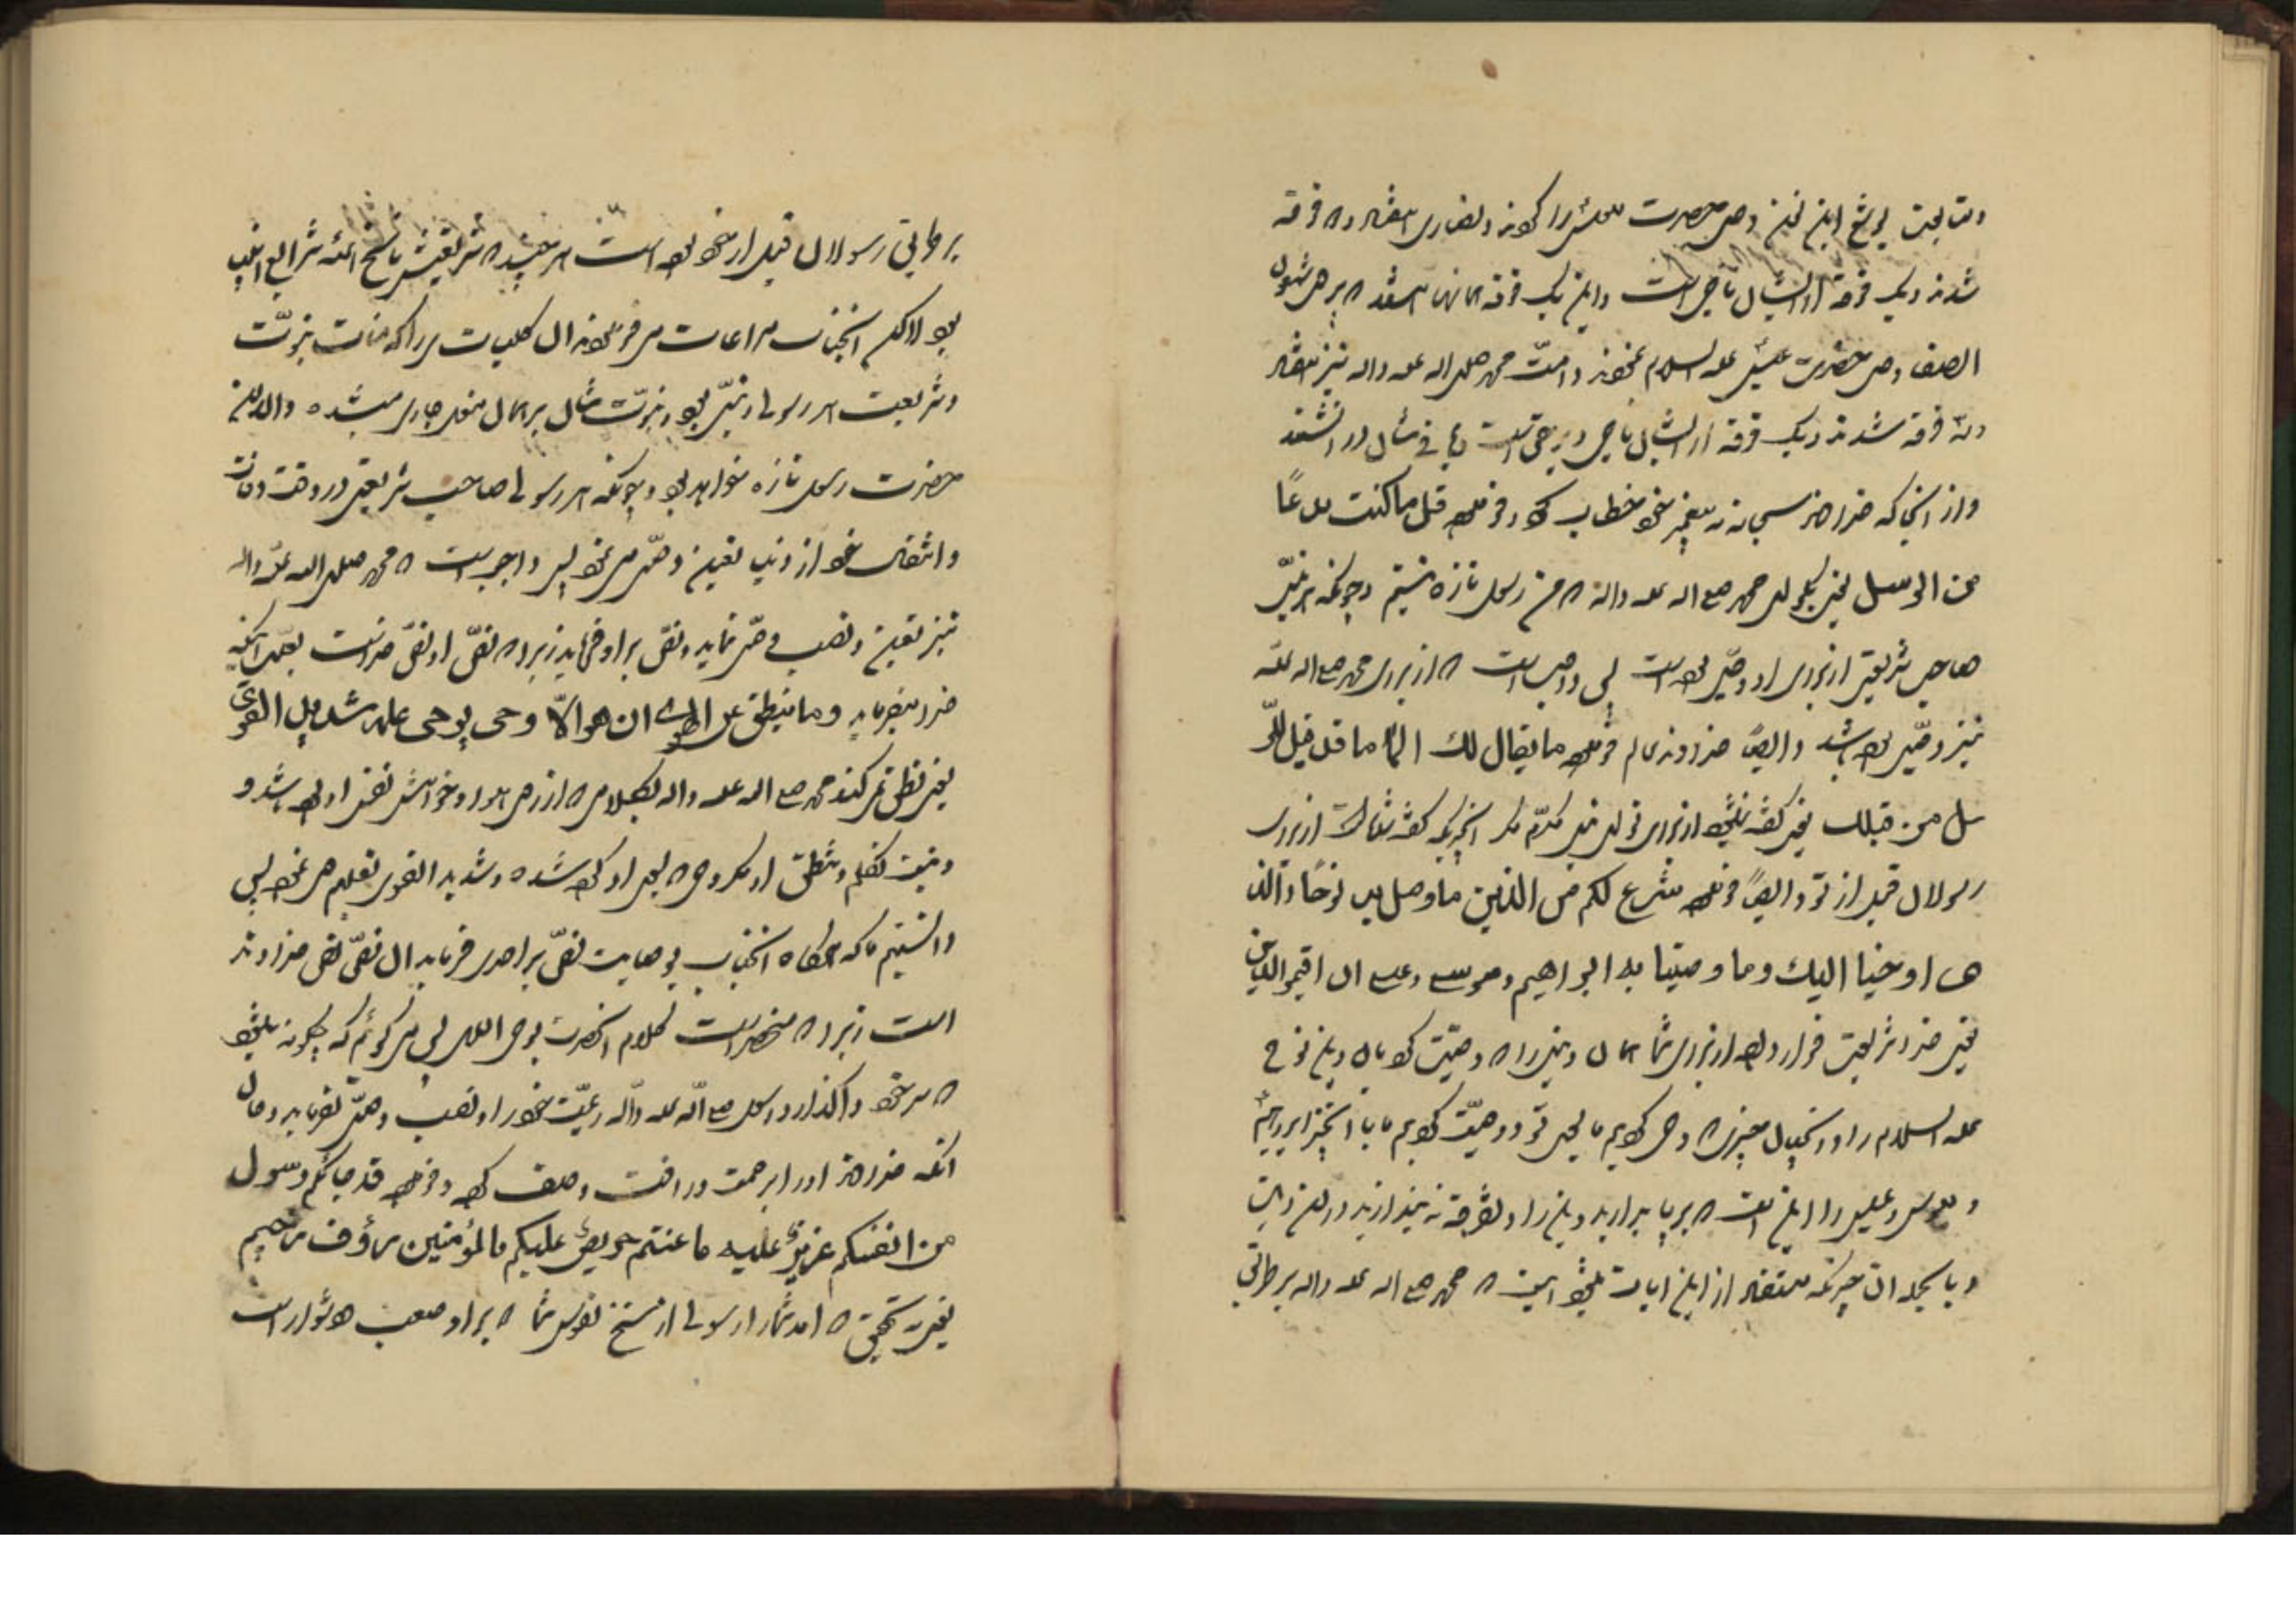 ومتابعت یوشع ابن نون وصی حضرت موسی را کردند و نصاری هفتاد و دو فرقه
شدند و یک فرقه از ایشان ناجی است و این یک فرقه آنانند که بر وصی شمعون
الصفا وصی حضرت عیسی علیه السلام نمودند و امت محمد صلی الله علیه و اله نیز هفتاد
و سه فرقه شدند و یک فرقه از ایشان ناجی و برحق است و باقی شان در آتشند
و از آنجا که خداوند سبحانه به پیغمبر خود خطاب کرد و فرمود قل ما کنت بدعًا
من الرسل یعنی بگو ای محمد ص اله علیه واله که من رسول تازه نیستم و چونکه هر نبی
صاحب شریعتی از برای او وصی بوده است پس واجب است که از برای محمد ص اله علیه
نیز وصی بوده باشد و ایضا خداوند عالم فرموده ما یقال لك الا ما قد قیل للر
سل من قبلك یعنی گفته نمیشود از برای تو ای نبی مکرم مگر آنچیزیکه گفته شده است از برای
رسولان قبل از تو و ایضاً فرموده شرع لکم من الدین ما وصی به نوحًا والذ
ی اوحینا الیك وما وصینا به ابراهیم وموسی وعیسی ان اقیموا الدین
یعنی خدا شریعت قرار داده از برای شما همان دینی را که وصیت کرد بان دین نوح
علیه السلام را و آنچنان چیزی که وحی کردیم ما بسوی تو و وصیت کردیم ما بان چیز ابراهیم
و موسی و عیسی را این است که برپا بدارید دین را و تفرقه نیندازید در این دین
و بالجمله آن چیزیکه مستفاد از این ایات میشود اینست که محمد ص اله علیه واله بر طریقه
بر طریقه رسولان قبل از خود بوده است هر چند که شریعتش ناسخ همه شرایع انبیا
بود لاکن انجناب مراعات میفرمودند ان کلیات را که منات نبوّت
وشریعت هر رسول و نبیّ بود و نبوّت شان بر همان منوال جاری میشده والا این
حضرت رسول تازه خواهد بود و چونکه هر رسول صاحب شریعتی در وقت وفات
وانتقال خود از دنیا تعیین وصی می نمود پس واجب است که محمد صلی الله علیه واله
نیز تعیین و نصب وصی نماید و نص بر او فرماید زیرا که نص او نص خداست بعلت اینکه
خدا میفرماید وما ینطق عن الهوی ان هو الا وحی یوحی علمه شدید القوی
یعنی نطق نمیکند محمد ص اله علیه واله بکلامی که از روی هوا و خواهش نفس او بوده باشد و
و نیست تکلم و نطق او مگر وحی که بسوی او کرده شده و شدید القوی تعلیم وی نموده پس
دانستیم ما که هرگاه انجناب بوصایت نص بر احدی فرماید ان نص نص خداوند
است زیرا که منحصر است کلام انحضرت بوحی الله پس می گوئیم که چگونه میشود
که سر خود واگذارد رسول ص اله علیه واله رعیت خود را و نصب وصی نفرماید و حال
آنکه خداوند او را برحمت و رافت وصف کرده و فرموده قد جائکم رسول
من انفسکم عزیز علیه ما عنتم حریص علیکم بالمؤمنین رؤف رحیم
یعنی بتحقیق که آمد شما را رسولی از سنخ نفوس شما که بر او صعب و دشوار است